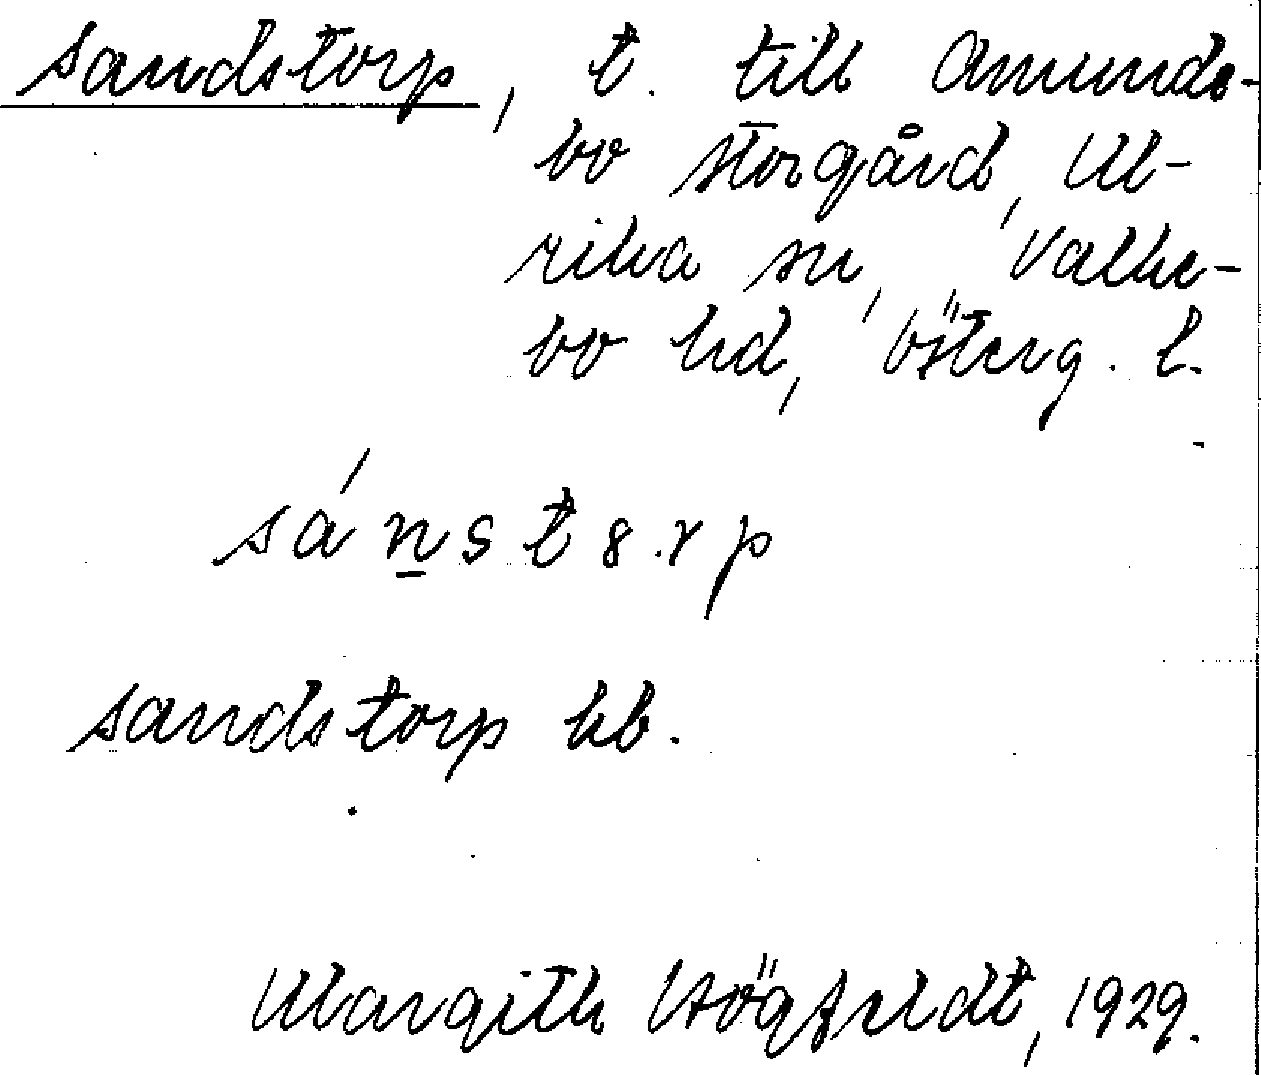 Sandstorp, t. till Amunds-
bo storgård, Ul-
rika sn, Valke-
bo hd, Österg. l.
sáns̲t8.rp
Sandstorp kb.
Margith Högfeldt, 1929.